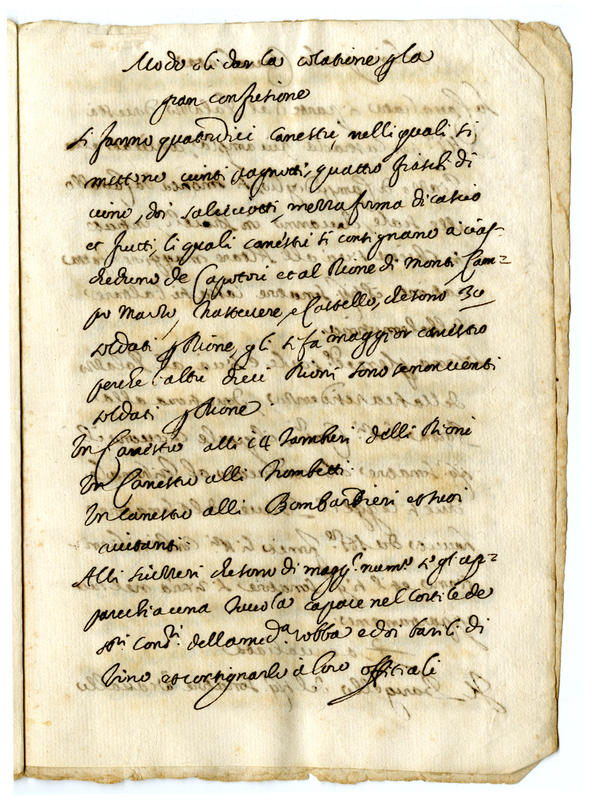 Modo di dar la colatione p la
gran confusione
Si fanno quattordici canestri, nelli quali si
mettono vinti pagnotti, quattro fiaschi di
vino, doi salciciotti, mezza forma di cascio
et frutti, li quali canestri si consignano a cias-
cheduno de Capotori et al Rione di Monti Cam=
po Marzo, Trastevere, e Castello, che sono 30
soldati p Rione, gli si fa maggior canestro
perche l'altri dieci Rioni sono se non venti
soldati p Rione.
Un Canestro alli 14 Tamburi delli Rioni
Un Canestro alli Trombetti
Un canestro alli Bombardieri et suoi
aiutanti
Alli che sono di magg.r num.o se gl'ap=
parechia una Tavola capace nel cortile de
ss.ri Con.ri della med.a robba e doi barili di
Vino et consignarli a loro offitiali